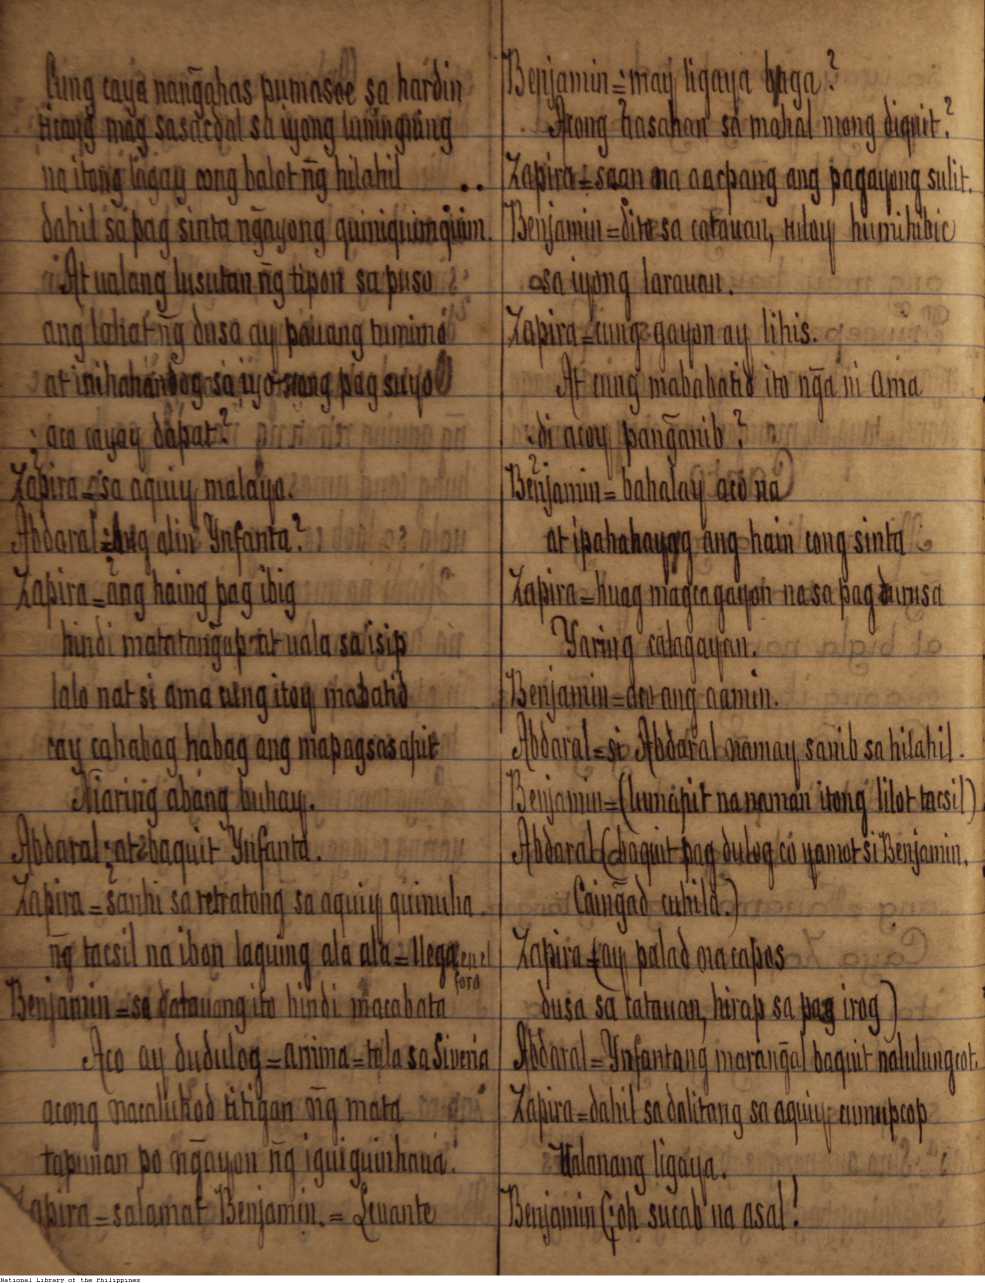 Cung caya nang̃ahas pumasoc sa hardin
ticang mag sasacdal sa iyong luningning
na itong lagay cong balot ng̃ hilahil
dahil sa pag sinta ng̃ayong quiniquimquim.
At ualang lusutan ng̃ tipon sa puso
ang lahat ng̃ dusa ay pauang tumimo
at inihahandog sa iyo nang pag suyo
aco cayay dapat?
Zapira = sa aquiy malaya.
Abdaral = Ang alin Ynfanta?
Zapira = ang haing pag ibig
hindi matatang̃ap at uala sa isip
lalo nat si ama cung itoy mabatid
cay cahabag habag ang mapagsasapit
Niaring abang buhay.
Abdaral = at baquit Ynfanta.
Zapira = sanhi sa retratong sa aquiy quinuha.
ng̃ tacsil na ibon laguing ala ala = llega
Benjamin = sa catauang ito hindi macabata
Aco ay dudulog = anima = tela sa Siveria
acong nacalulkod titigan ng̃ mata
tapunan po ng̃ayon ng̃ iguiguinhaua.
Zapira = salamat Benjamin. = Levante
Benjamin = may ligaya bang̃a?
Acong hasahan sa mahal mong diquit?
Zapira = saan na aacpang ang pagayong sulit.
Benjamin = dito sa catauan, tuloy humihibic
sa iyong larauan.
Zapira = cung gayon ay lihis.
At cung mababatid ito ng̃a ni Ama
di acoy pang̃anib?
Benjamin = bahalay aco na
at ipahahayag ang hain cong sinta
Zapira = huag magcagayon na sa pag dumsa
Yaring catagayan.
Benjamin = doo ang aamin.
Abdaral = si Abdaral namay sanib sa hilahil.
Benjamin = (lumapit na naman itong lilot tacsil)
Abdaral (baquit pag dulog co yamot si Benjamin.
Caing̃ad cuhila.)
Zapira = (ay palad na capos
dusa sa catauan, hirap sa pag irog)
Abdaral = Ynfantang marang̃al baquit nalulungcot.
Zapira = dahil sa dalitang sa aquiy cumupcop
Ualanang ligaya.
Benjamin (oh sucab na asal!
National Library of the Philippines